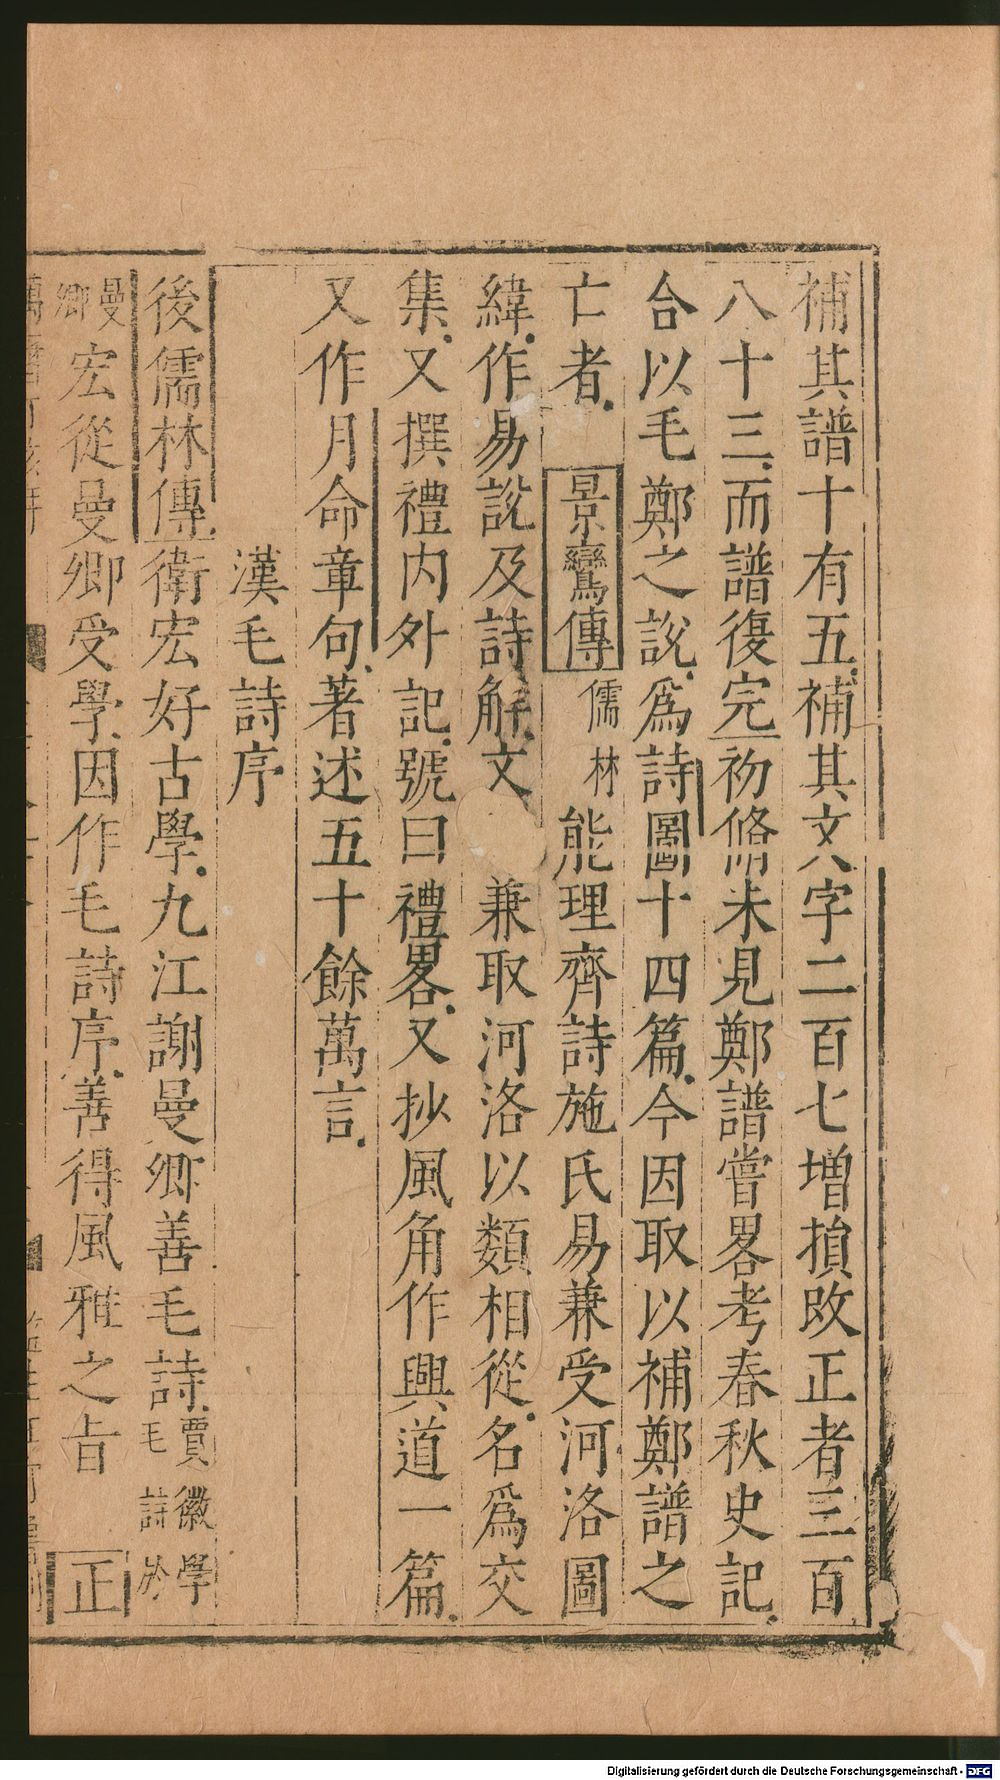 補其譜十有五補其文字二百七増損攺正者三百
八十三而譜復完初脩未見鄭譜嘗畧考春秋史記
合以毛鄭之說爲詩圖十四篇今因取以補鄭譜之
亡者景鸞傳儒林能理齊詩施氏易兼受河洛圖
緯作易說及詩解文兼取河洛以類相從名爲交
集又撰禮内外記號曰禮畧又抄風角作興道一篇
又作月命章句著述五十餘萬言
漢毛詩序
後儒林傳衛宏好古學九江謝曼卿善毛詩賈徽學毛詩於
曼卿宏從曼卿受學因作毛詩序善得風雅之旨正
Digitalisierung gefördert durch die Deutsche Forschungsgemeinschaft - DFG